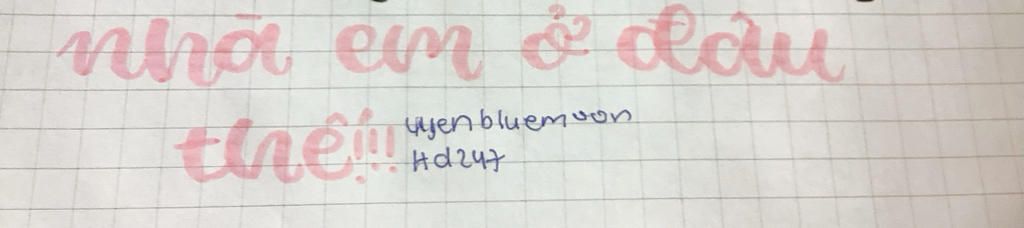 nhà em ở đâu
thế!!!
uyenbluemoon
Hd247